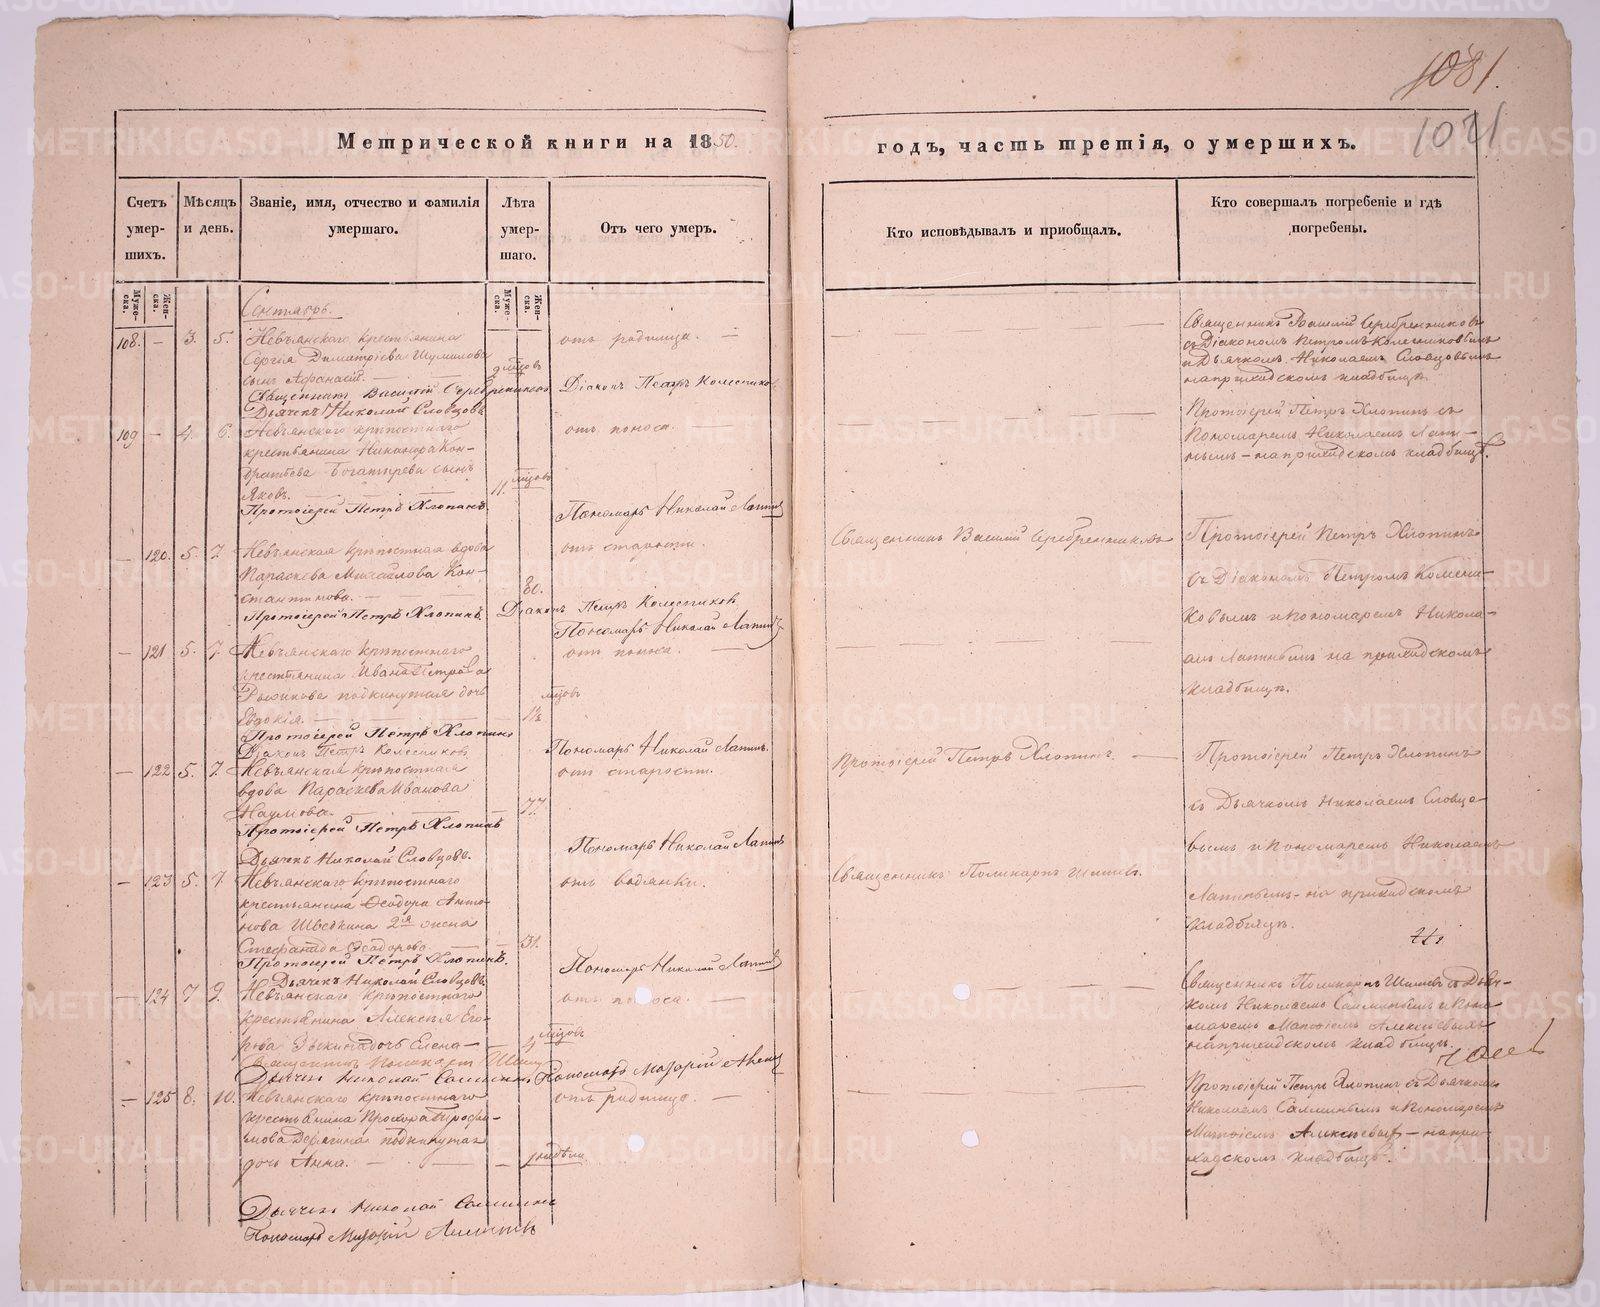 1081.
1021
Метрической книги на 1850.
годъ, часть третія, о умершихъ.
Счетъ умер-шихъ.
Мѣсяцъ и день.
Званіе, имя, отчество и фамилія умершаго.
Лѣта умер-шаго.
Отъ чего умеръ.
Кто исповѣдывалъ и приобщалъ.
Кто совершалъ погребеніе и гдѣ погребены.
Муже-ска.
Жен-ска.
Муже-ска.
Жен-ска.
Сентябрь.
108. — 3. 5. Невьянскаго крестьянина
Сергія Димитріева Шумилова
сынъ Афанасій.
отъ родимца. —
Священникъ Василій Серебренниковъ
съ Діакономъ Петромъ Колесниковымъ
и Дьячкомъ Николаемъ Словцовымъ
на приходскомъ кладбищѣ.
Священникъ Василій Серебренниковъ Діаконъ Петръ Колесников
Дьячекъ Николай Словцовъ
109 — 4. 6. Невьянскаго крѣпостнаго
крестьянина Никанора Кон-
дратьева Богатырева сынъ
Яковъ. 11. мцовъ
отъ поноса. —
Протоіерей Петръ Хлопинъ съ
Пономаремъ Николаемъ Лапи-
нымъ — на приходскомъ кладбищѣ.
Протоіерей Петръ Хлопинъ. Пономарь Николай Лапинъ
— 120. 5. 7. Невьянская крѣпостная вдова
Параскева Михайлова Кон-
стантинова. — 80.
отъ старости.
Священникъ Василій Серебренниковъ
Протоіерей Петръ Хлопинъ
съ Діакономъ Петромъ Колесни-
ковымъ и Пономаремъ Никола-
емъ Лапинымъ на приходскомъ
кладбищѣ.
Протоіерей Петръ Хлопинъ. Діаконъ Петръ Колесников
Пономарь Николай Лапинъ
— 121 5. 7. Невьянскаго крѣпостнаго
крестьянина Ивана Петрова
подкинутая дочь
Евдокія. мцовъ
отъ поноса. —
Протоіерей Петръ Хлопинъ
Діаконъ Петръ Колесников Пономарь Николай Лапинъ.
— 122 5. 7. Невьянская крѣпостная
вдова Параскева Иванова
Наумова. — 77.
отъ старости.
Протоіерей Петръ Хлопинъ.
Протоіерей Петръ Хлопинъ
съ Дьячкомъ Николаемъ Словцо-
вымъ и Пономаремъ Николаемъ
Лапинымъ — на приходскомъ
кладбищѣ.
Протоіерей Петръ Хлопинъ
Дьячекъ Николай Словцовъ. Пономарь Николай Лапинъ
— 123 5. 7. Невьянскаго крѣпостнаго
крестьянина Ѳеодора Анто-
нова Швецкина 2я жена
Стефанида Ѳеодорова — 31.
отъ водянки.
Священникъ Поликарпъ
Протоіерей Петръ Хлопинъ.
Дьячекъ Николай Словцовъ. Пономарь Николай Лапинъ
— 124 7 9. Невьянскаго крѣпостнаго
крестьянина Алексѣя Его-
рова дочь Елена — мцовъ
отъ поноса. —
Священникъ Поликарпъ съ Дьяч-
комъ Николаемъ и Поно-
маремъ Алексѣевымъ
на приходскомъ кладбищѣ.
Священникъ Поликарпъ
Дьячекъ Николай Пономарь
— 125 8. 10. Невьянскаго крѣпостнаго
крестьянина Прохора Трофи-
мова подкинутая
дочь Анна. — недѣли
отъ родимца. —
Протоіерей Петръ Хлопинъ съ Дьячкомъ
Николаемъ и Пономаремъ
Алексѣевымъ — на при-
ходскомъ кладбищѣ.
Дьячекъ Николай
Пономарь
METRIKI.GASO-URAL.RU